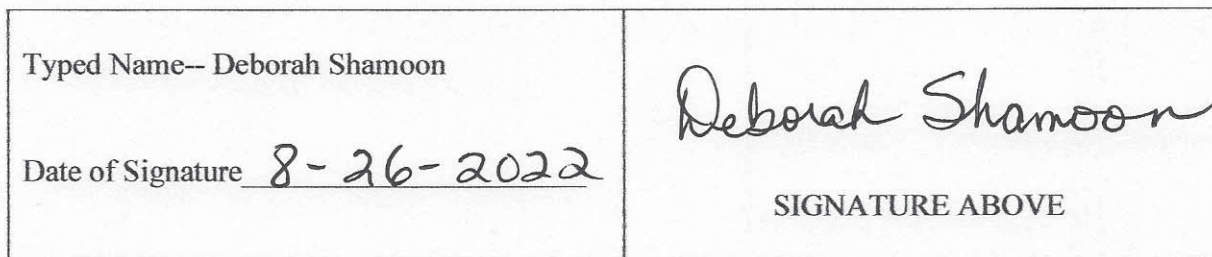 Typed Name-- Deborah Shamoon
Date of Signature 8-26-2022
Deborah Shamoon
SIGNATURE ABOVE